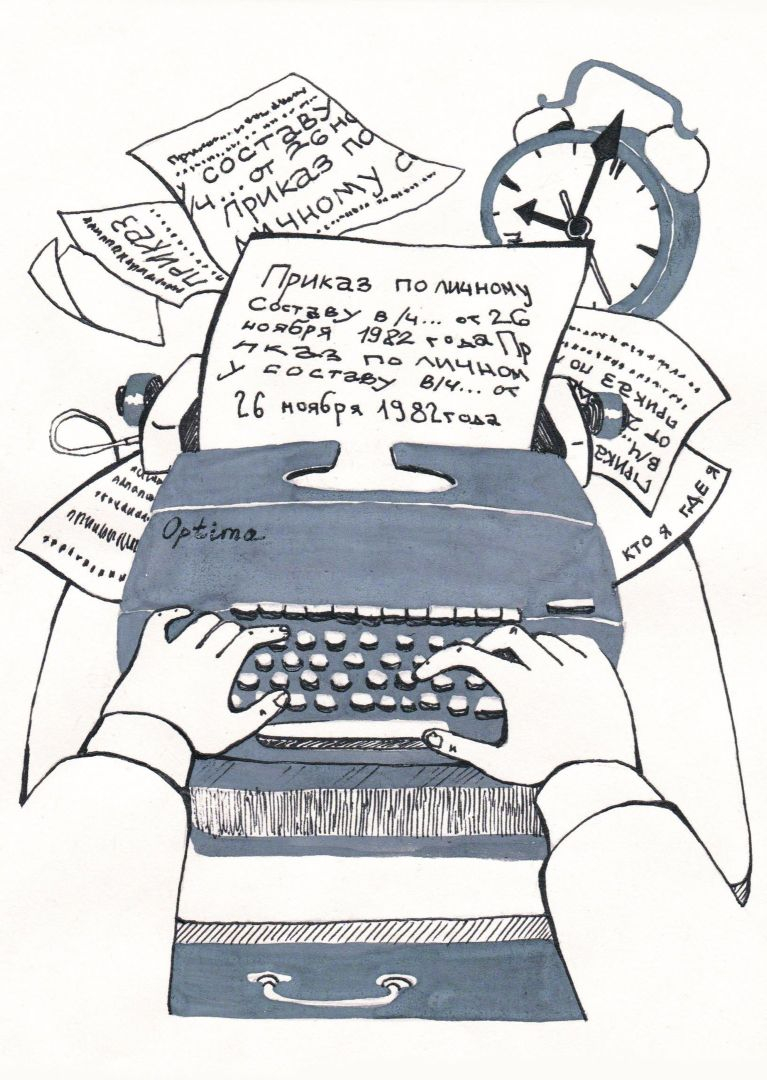 составу
... от 26 но
приказ по
личному с
приказ
Приказ по личному
составу в/ч... от 26
ноября 1982 года Пр
иказ по личном
у составу в/ч... от
26 ноября 1982 года
приказ по л
от 2
в/ч...
приказ
кто я где я
Optima